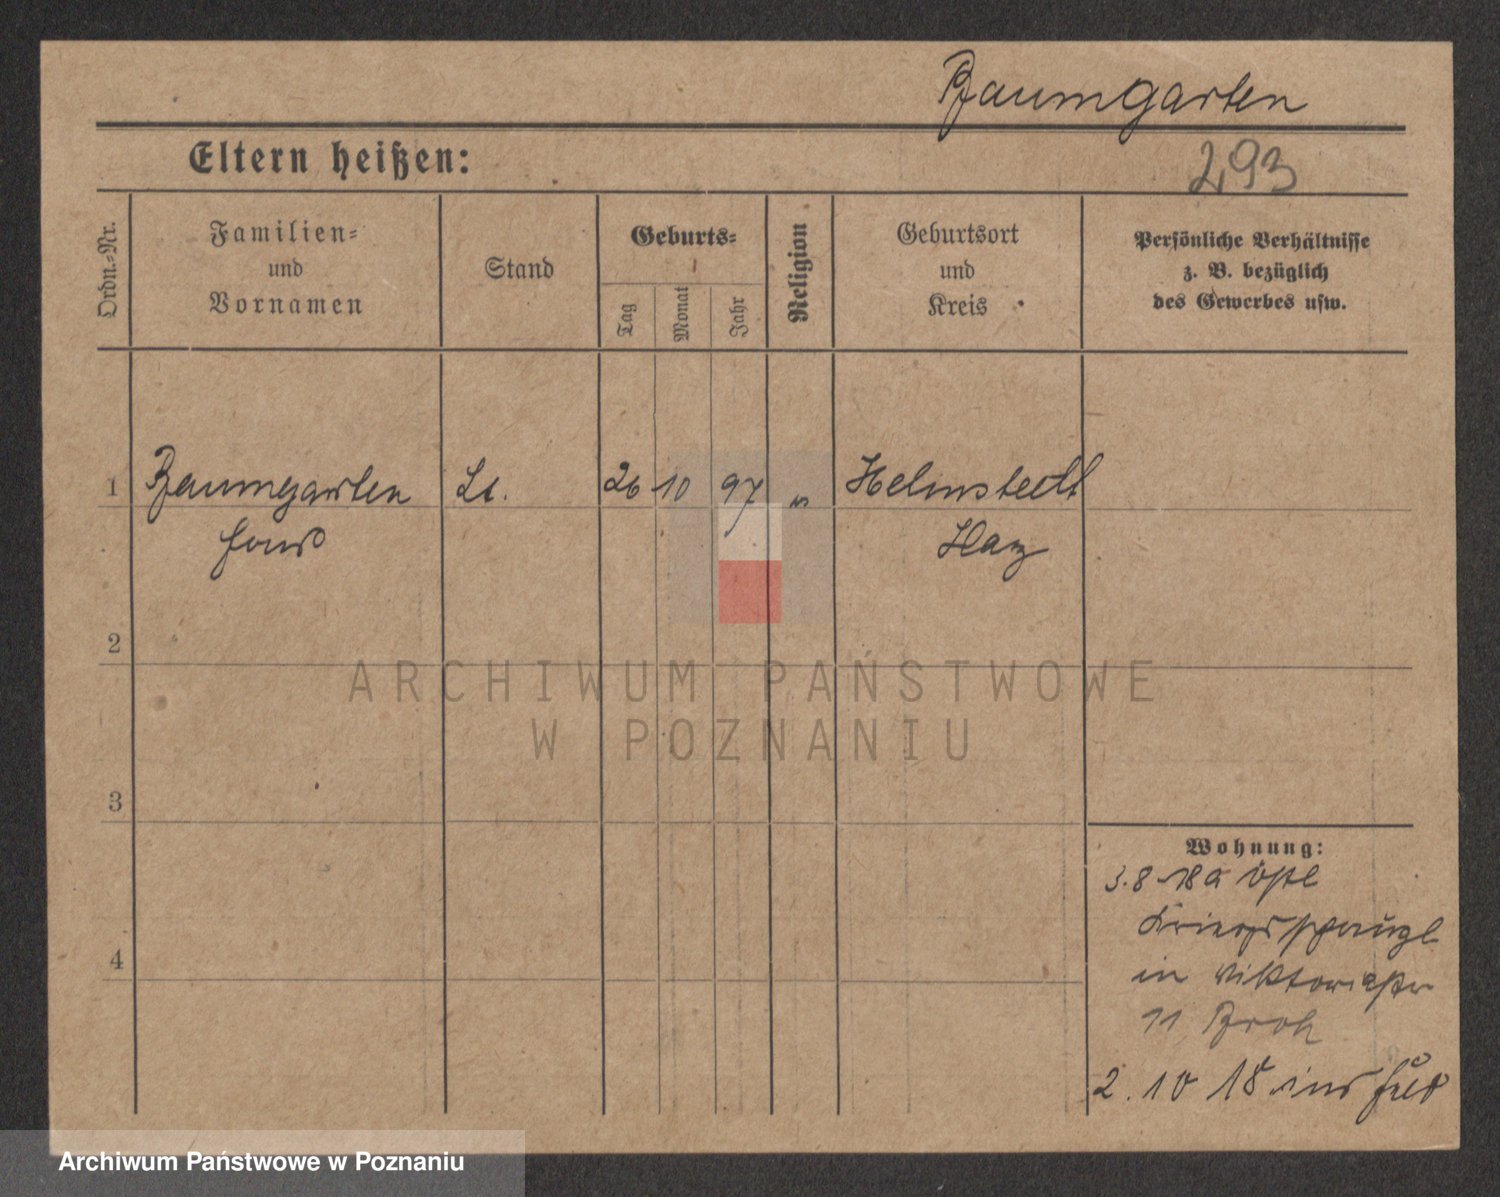 Baumgarten
Eltern heißen:
293
Ordn.-Nr.
Familien-
und
Vornamen
Stand
Geburts-
Tag
Monat
Jahr
Religion
Geburtsort
und
Kreis
Persönliche Verhältnisse
z. B. bezüglich
des Gewerbes usw.
1 Baumgarten Lt. 26 10 97 Helmstedt
Hans Harz
2
3
4
ARCHIWUM PAŃSTWOWE
W POZNANIU
Wohnung:
3.8 18 a
in Viktoriastr
11 Broh
2. 10 18 ins Feld
Archiwum Państwowe w Poznaniu